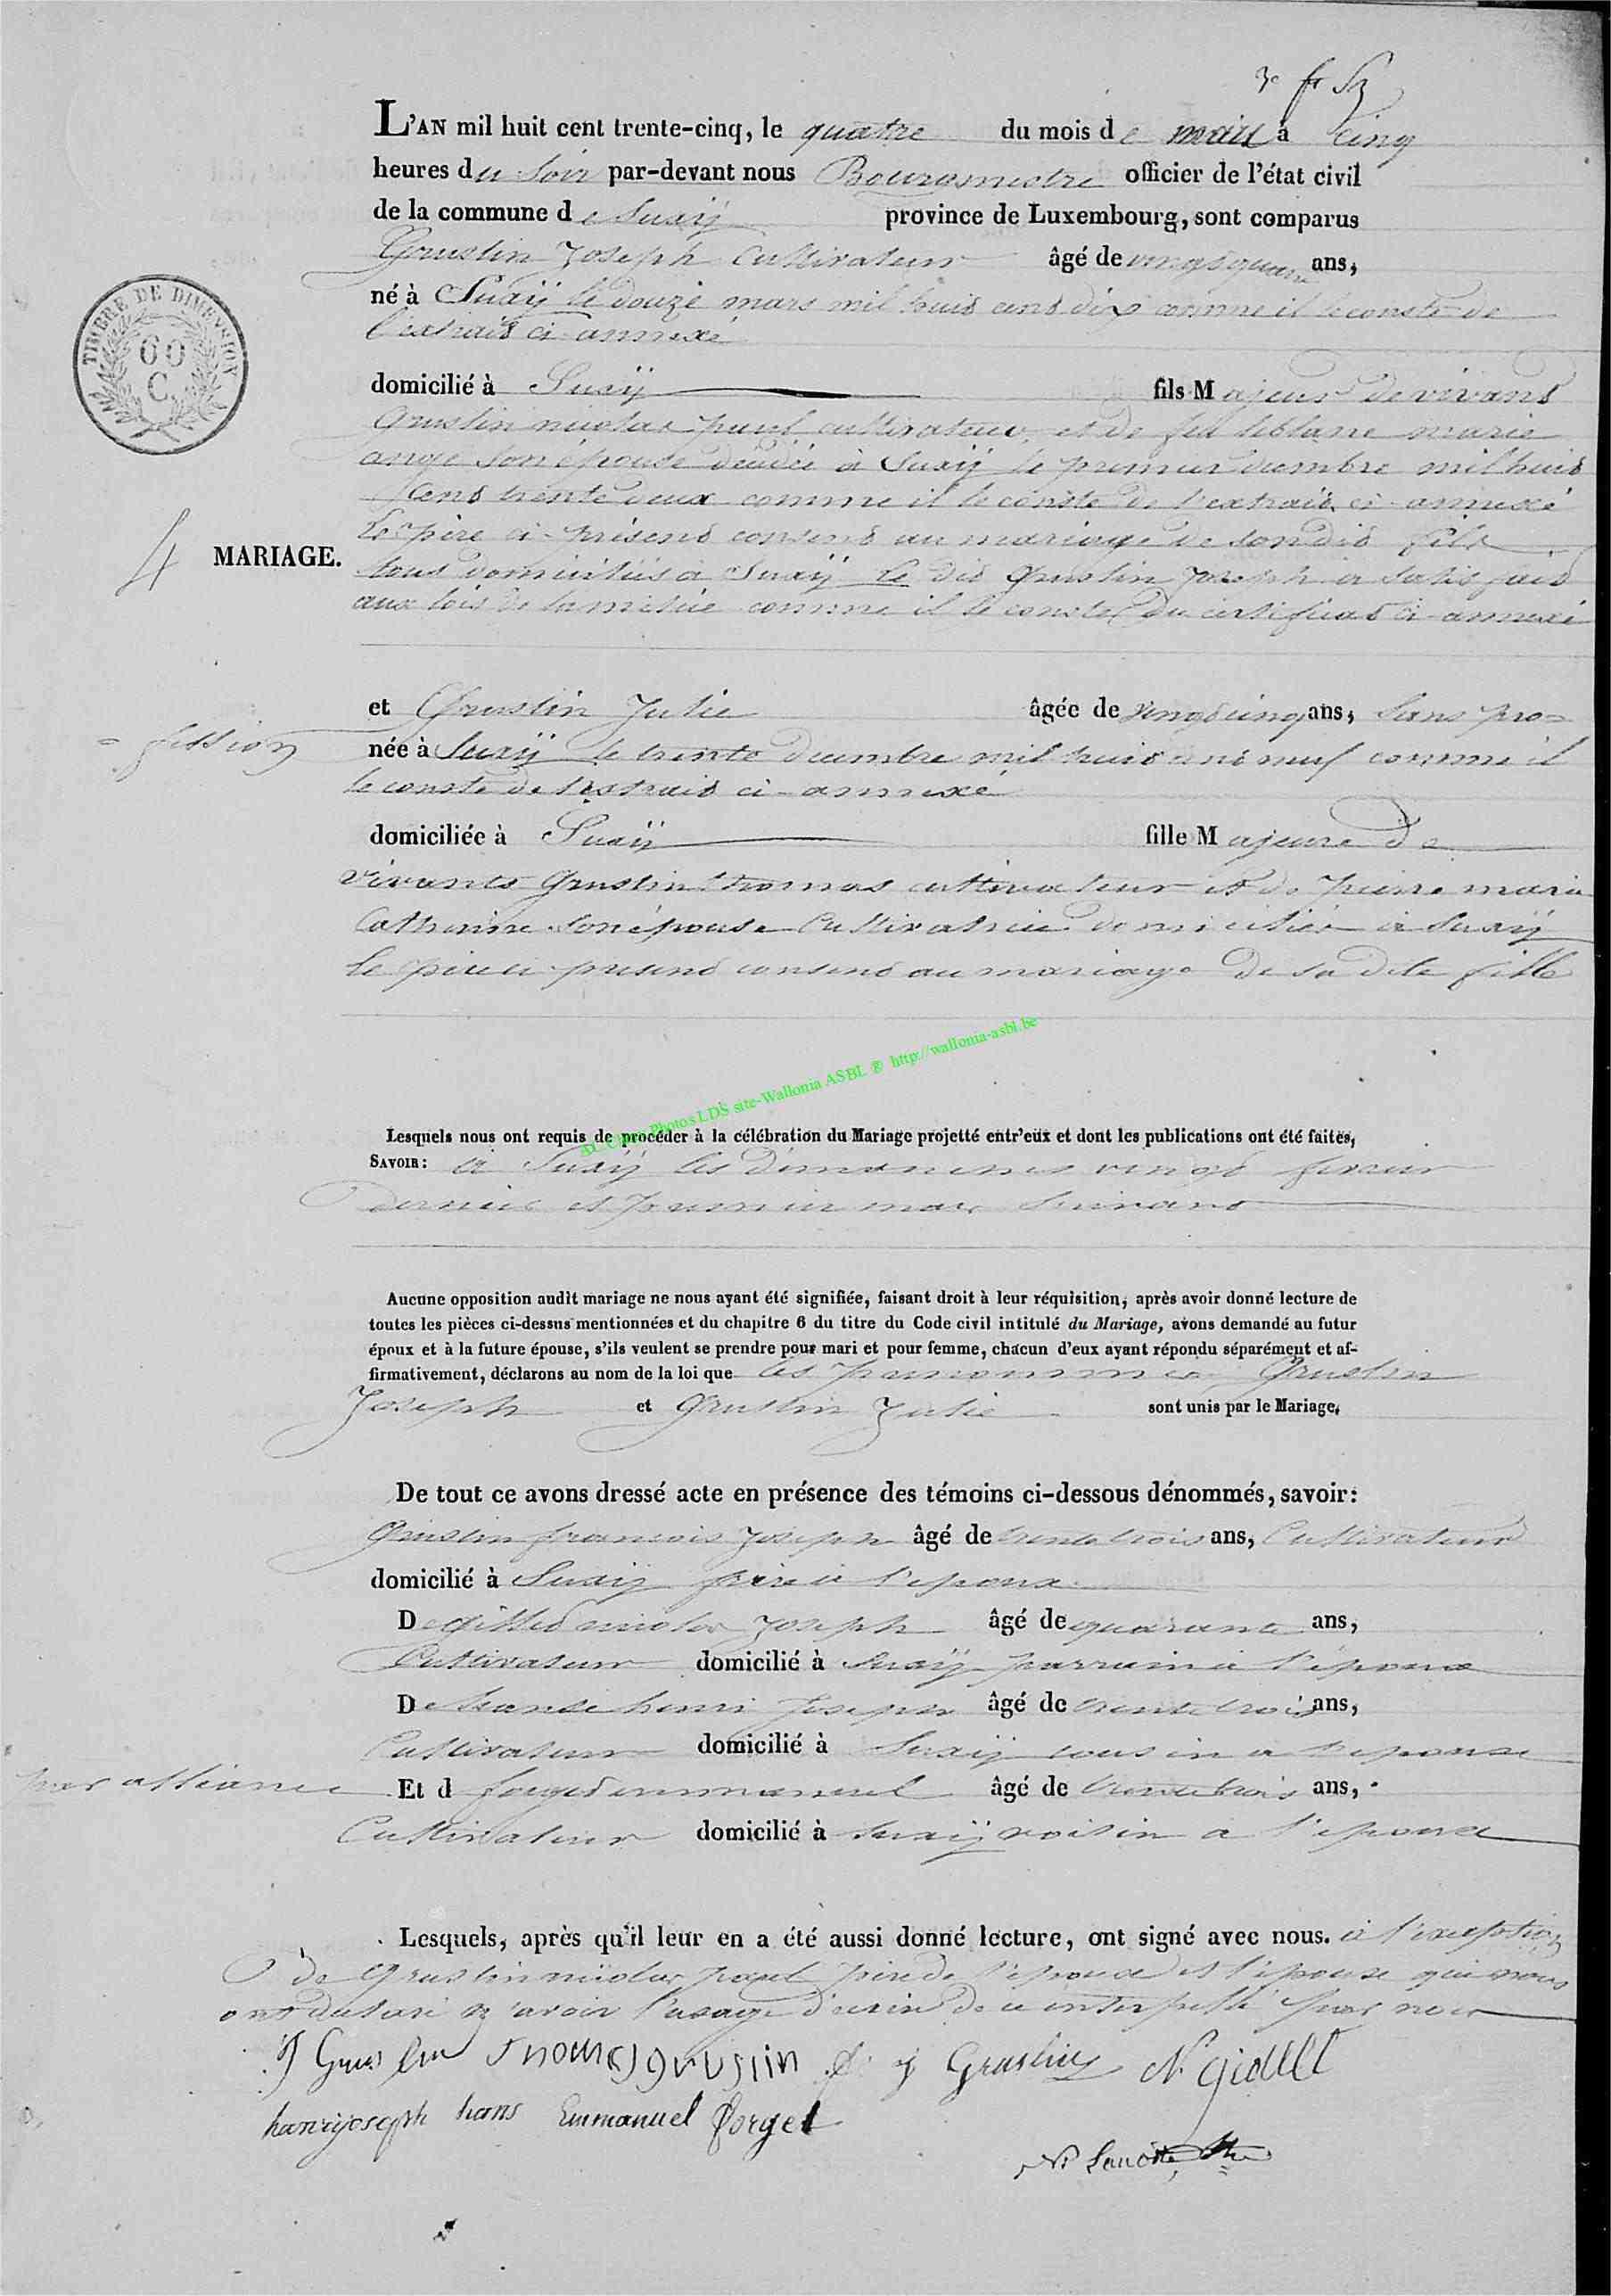 3e fr
L'AN mil huit cent trente-cinq, le quatre du mois de mars à cinq
heures du soir par-devant nous Bourgmestre officier de l'état civil
de la commune de Suxÿ province de Luxembourg, sont comparus
Grustin Joseph Cultivateur âgé de vingt quatre ans,
né à Suxÿ le douze mars mil huit cent dix comme il le conste de
l'extrait ci-annexé
domicilié à Suxÿ fils Majeur de vivant
Grustin nicolas paul cultivateur, et de feu leblanc marie
ange son épouse décédée à Suxÿ le premier décembre mil huit
cent trente deux comme il le conste de l'extrait ci-annexé
Le père ci-présent consent au mariage de son dit fils
tous domiciliés à Suxÿ Le dit Grustin Joseph a satisfait
aux lois de la milice comme il le conste du certificat ci-annexé
4 MARIAGE.
TIMBRE DE DIMENSION
60
C.
et Grustin Julie âgée de vingt cinq ans, sans pro=
= fession
née à Suxÿ le trente décembre mil huit cent neuf comme il
le conste de l'extrait ci-annexé
domiciliée à Suxÿ fille Majeure de
vivants Grustin thomas cultivateur et de pierre marie
Catherine son épouse Cultivatrice domiciliés à Suxÿ
le père ci-présent consent au mariage de sa dite fille
Photos LDS site-Wallonia ASBL ® http://wallonia-asbl.be
Lesquels nous ont requis de procéder à la célébration du Mariage projetté entr'eux et dont les publications ont été faites,
SAVOIR: à Suxÿ les dimanches vingt fevrier
dernier et premier mars suivant
Aucune opposition audit mariage ne nous ayant été signifiée, faisant droit à leur réquisition, après avoir donné lecture de
toutes les pièces ci-dessus mentionnées et du chapitre 6 du titre du Code civil intitulé du Mariage, avons demandé au futur
époux et à la future épouse, s'ils veulent se prendre pour mari et pour femme, chacun d'eux ayant répondu séparément et af-
firmativement, déclarons au nom de la loi que les Grustin
Joseph et Grustin Julie sont unis par le Mariage.
De tout ce avons dressé acte en présence des témoins ci-dessous dénommés, savoir:
Grustin francois Joseph âgé de trente trois ans, Cultivateur
domicilié à Suxÿ frère à l'epoux
De nicolas Joseph âgé de quarante ans,
Cultivateur domicilié à Suxÿ parrain à l'époux
De henri Joseph âgé de trente trois ans,
Cultivateur domicilié à Suxÿ cousin à l'epouse
par alliance
Et d forget emmanuel âgé de trente trois ans,
Cultivateur domicilié à Suxÿ voisin à l'epoux
Lesquels, après qu'il leur en a été aussi donné lecture, ont signé avec nous. à l'exception
de Grustin nicolas paul père de l'époux et l'épouse qui nous
ont declaré n'avoir l'usage d'ecrire de ce interpellé par nous
J Grustin Thomas grustin f j Grustin N. gidlet
hanrijoseph hans Emmanuel forget